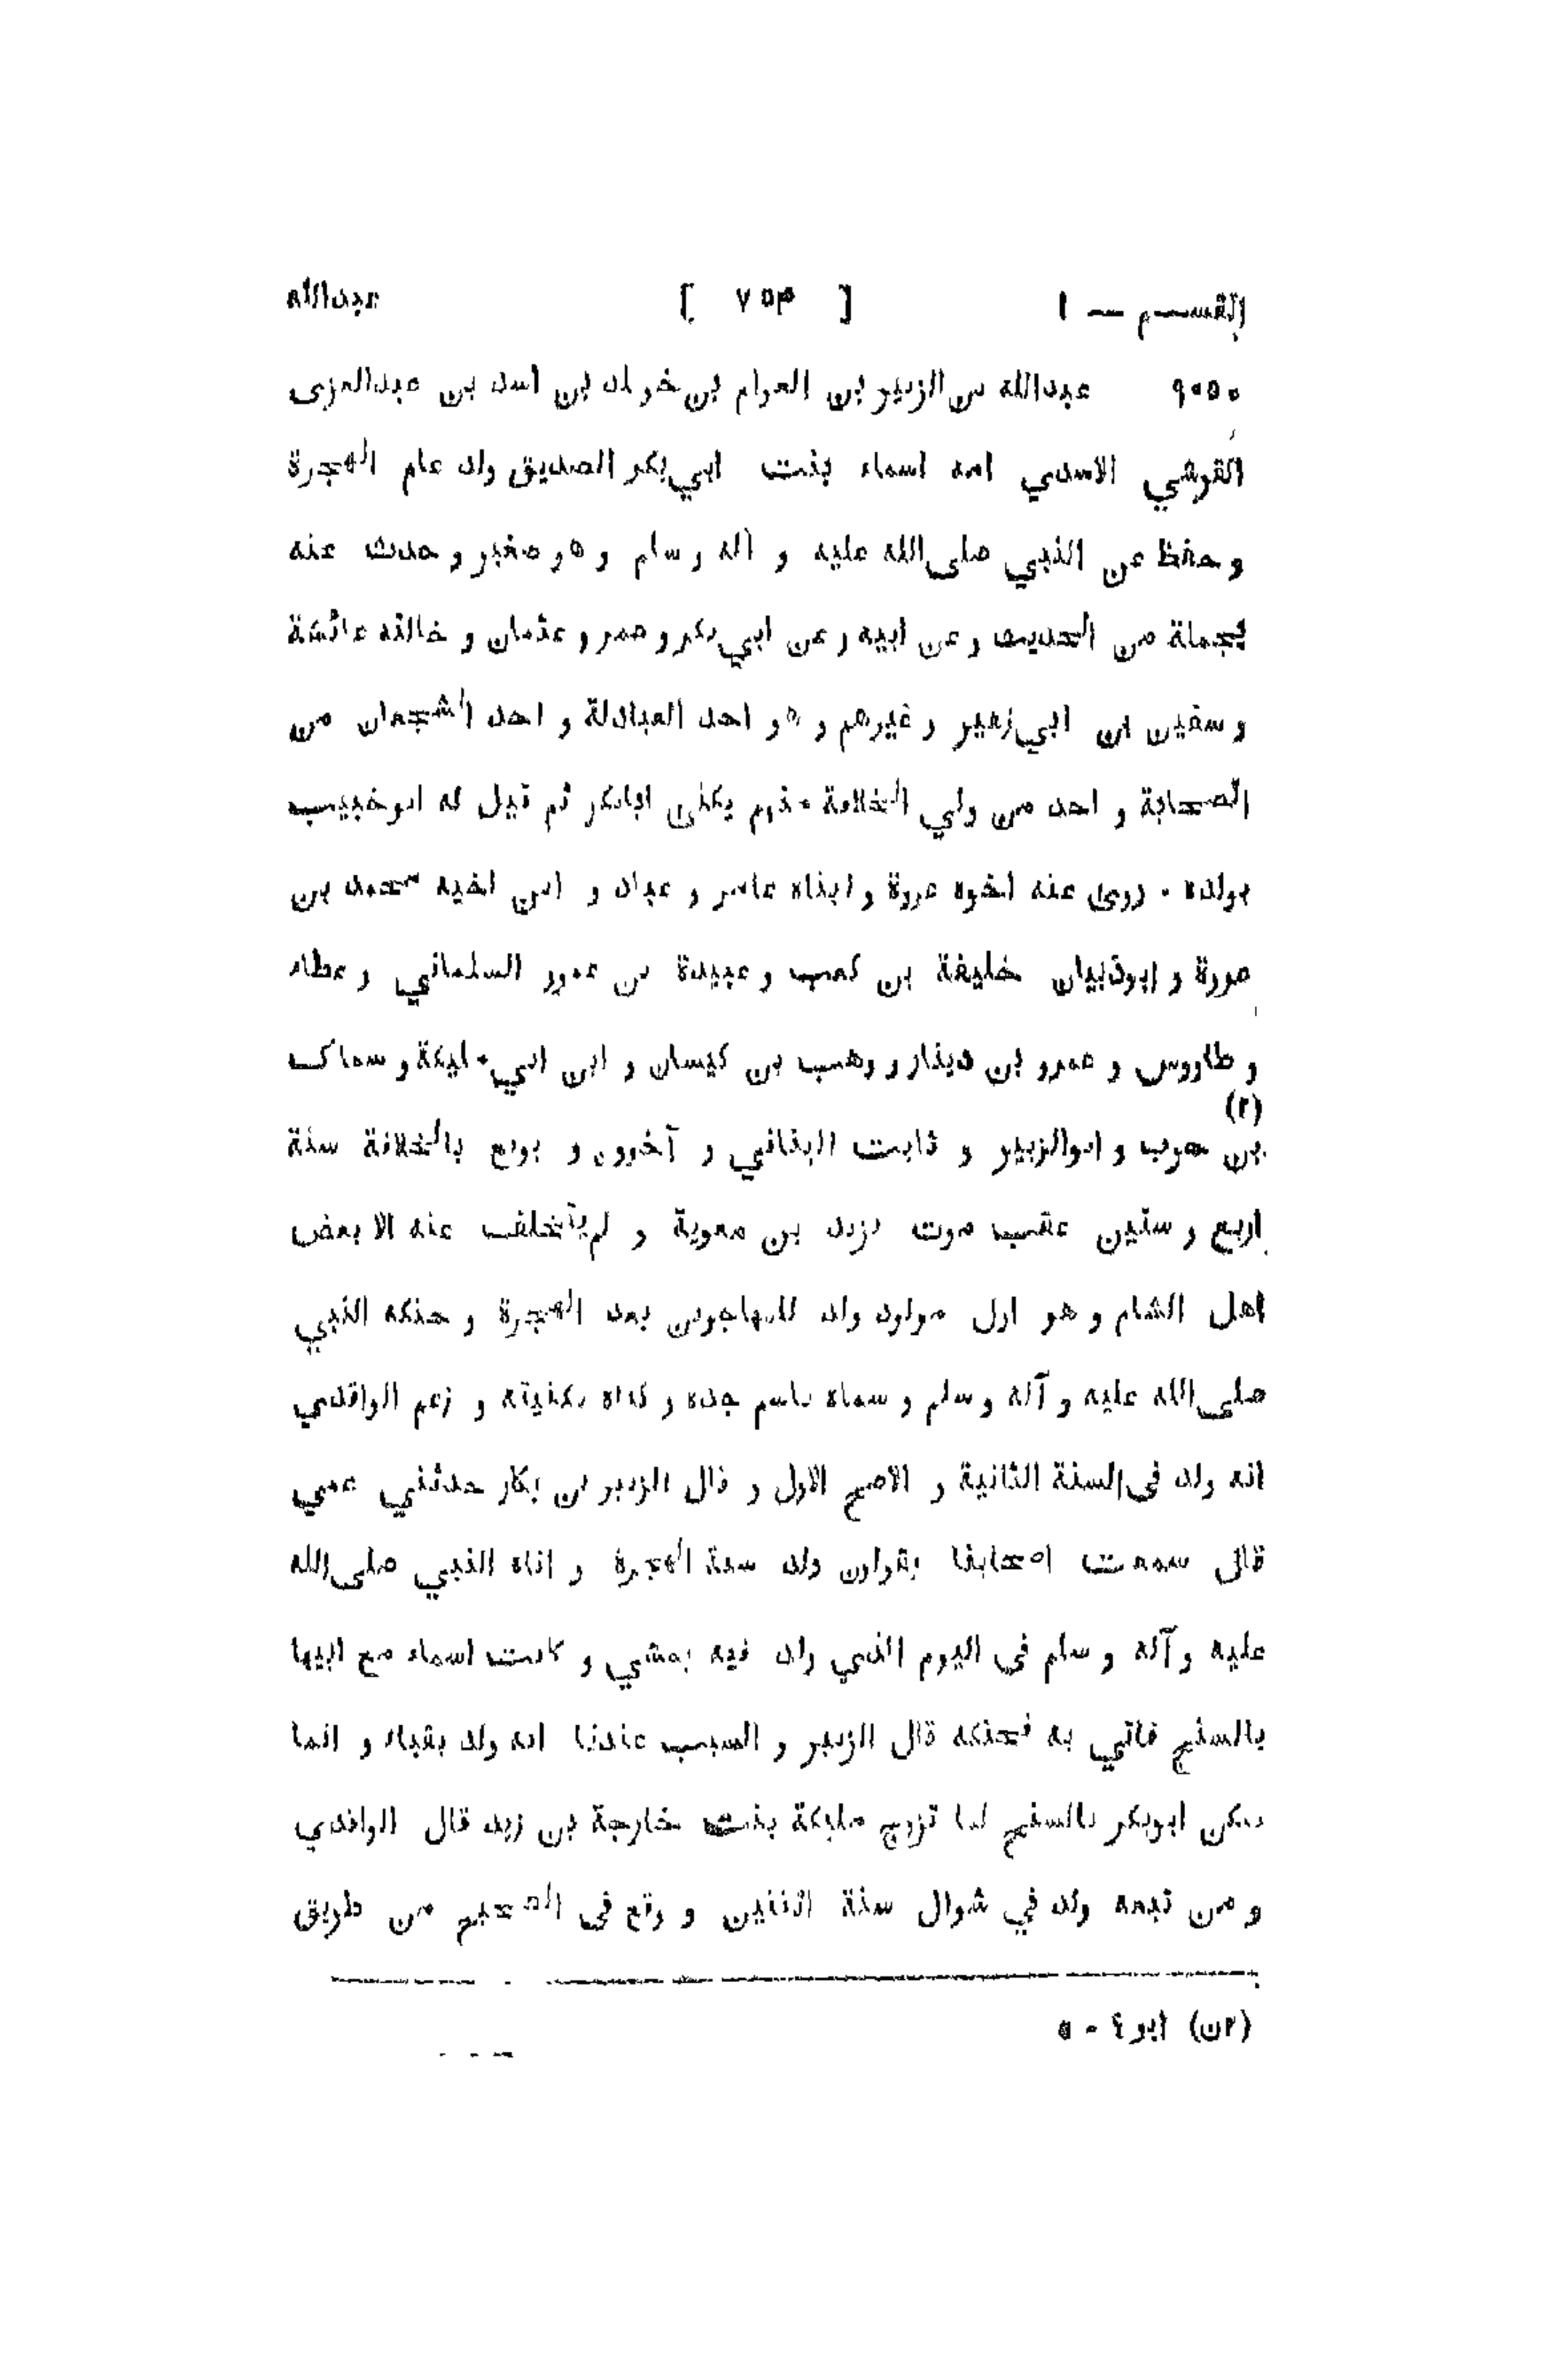 القسم — ١ [ ٧٥٣ ] عبدالله
٩٠٥٥ عبدالله بن الزبير بن العوام بن خويلد بن اسد بن عبدالعزى
القرشي الاسدي امه اسماء بنت ابي بكر الصديق ولد عام الهجرة
و حفظ عن النبي صلى الله عليه و آله و سلم و هو صغير و حدث عنه
بجملة من الحديث و عن ابيه و عن ابي بكر و عمر و عثمان و خالته عائشة
و سفين بن ابي زهير و غيرهم و هو احد العبادلة و احد الشجعان من
الصحابة و احد من ولي الخلافة منهم يكنى ابابكر ثم قيل له ابو خبيب
بولده ٠ روى عنه اخوه عروة و ابناه عامر و عباد و ابن اخيه محمد بن
عروة و ابوذبيان خليفة بن كعب و عبيدة بن عمرو السلماني و عطاء
و طاووس و عمرو بن دينار و وهب بن كيسان و ابن ابي مليكة و سماك
(٢)
بن حرب و ابوالزبير و ثابت البناني و آخرون و بويع بالخلافة سنة
اربع و ستين عقب موت يزيد بن معوية و لم يتخلف عنه الا بعض
اهل الشام و هو اول مولود ولد للمهاجرين بعد الهجرة و حنكه النبي
صلى الله عليه و آله و سلم و سماه باسم جده و كناه بكنيته و زعم الواقدي
انه ولد فى السنة الثانية و الاصح الاول و قال الزبير بن بكار حدثني عمي
قال سمعت اصحابنا يقولون ولد سنة الهجرة و اتاه النبي صلى الله
عليه و آله و سلم في اليوم الذي ولد فيه يمشي و كانت اسماء مع ابيها
بالسنح فاتي به فحنكه قال الزبير و السبب عندنا انه ولد بقباء و انما
سكن ابوبكر بالسنح لما تزوج مليكة بنت خارجة بن زيد قال الواقدي
و من تبعه ولد في شوال سنة اثنتين و وقع فى الصحيح من طريق
(٢ن) ابو ٤ - ٥